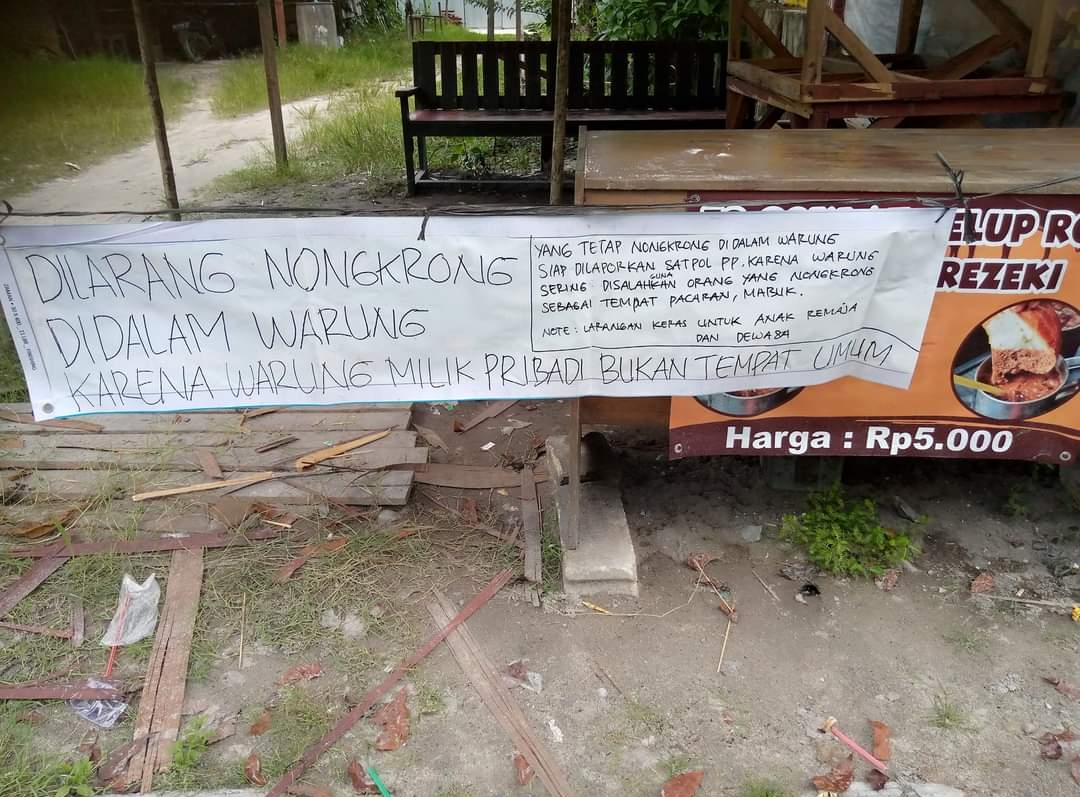 DILARANG NONGKRONG
DIDALAM WARUNG
KARENA WARUNG MILIK PRIBADI BUKAN TEMPAT UMUM
YANG TETAP NONGKRONG DIDALAM WARUNG
SIAP DILAPORKAN SATPOL PP. KARENA WARUNG
SERING DISALAHGUNAKAN ORANG YANG NONGKRONG
SEBAGAI TEMPAT PACARAN, MABUK.
NOTE : LARANGAN KERAS UNTUK ANAK REMAJA
DAN DEWASA
ELUP RO
REZEKI
Harga : Rp5.000